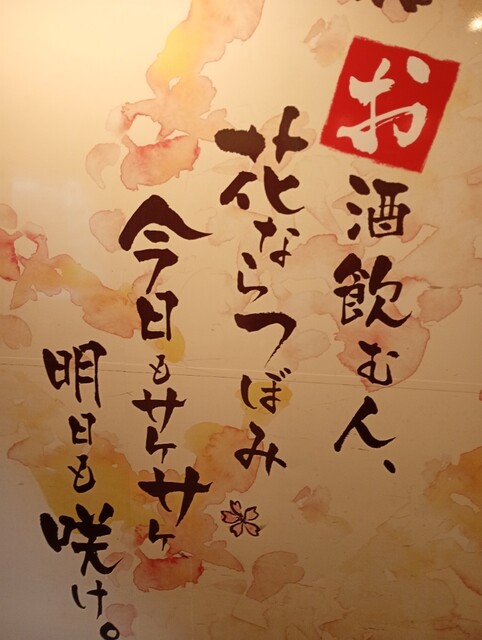 お酒飲む人、
花ならつぼみ
今日もサケサケ
明日も咲け。